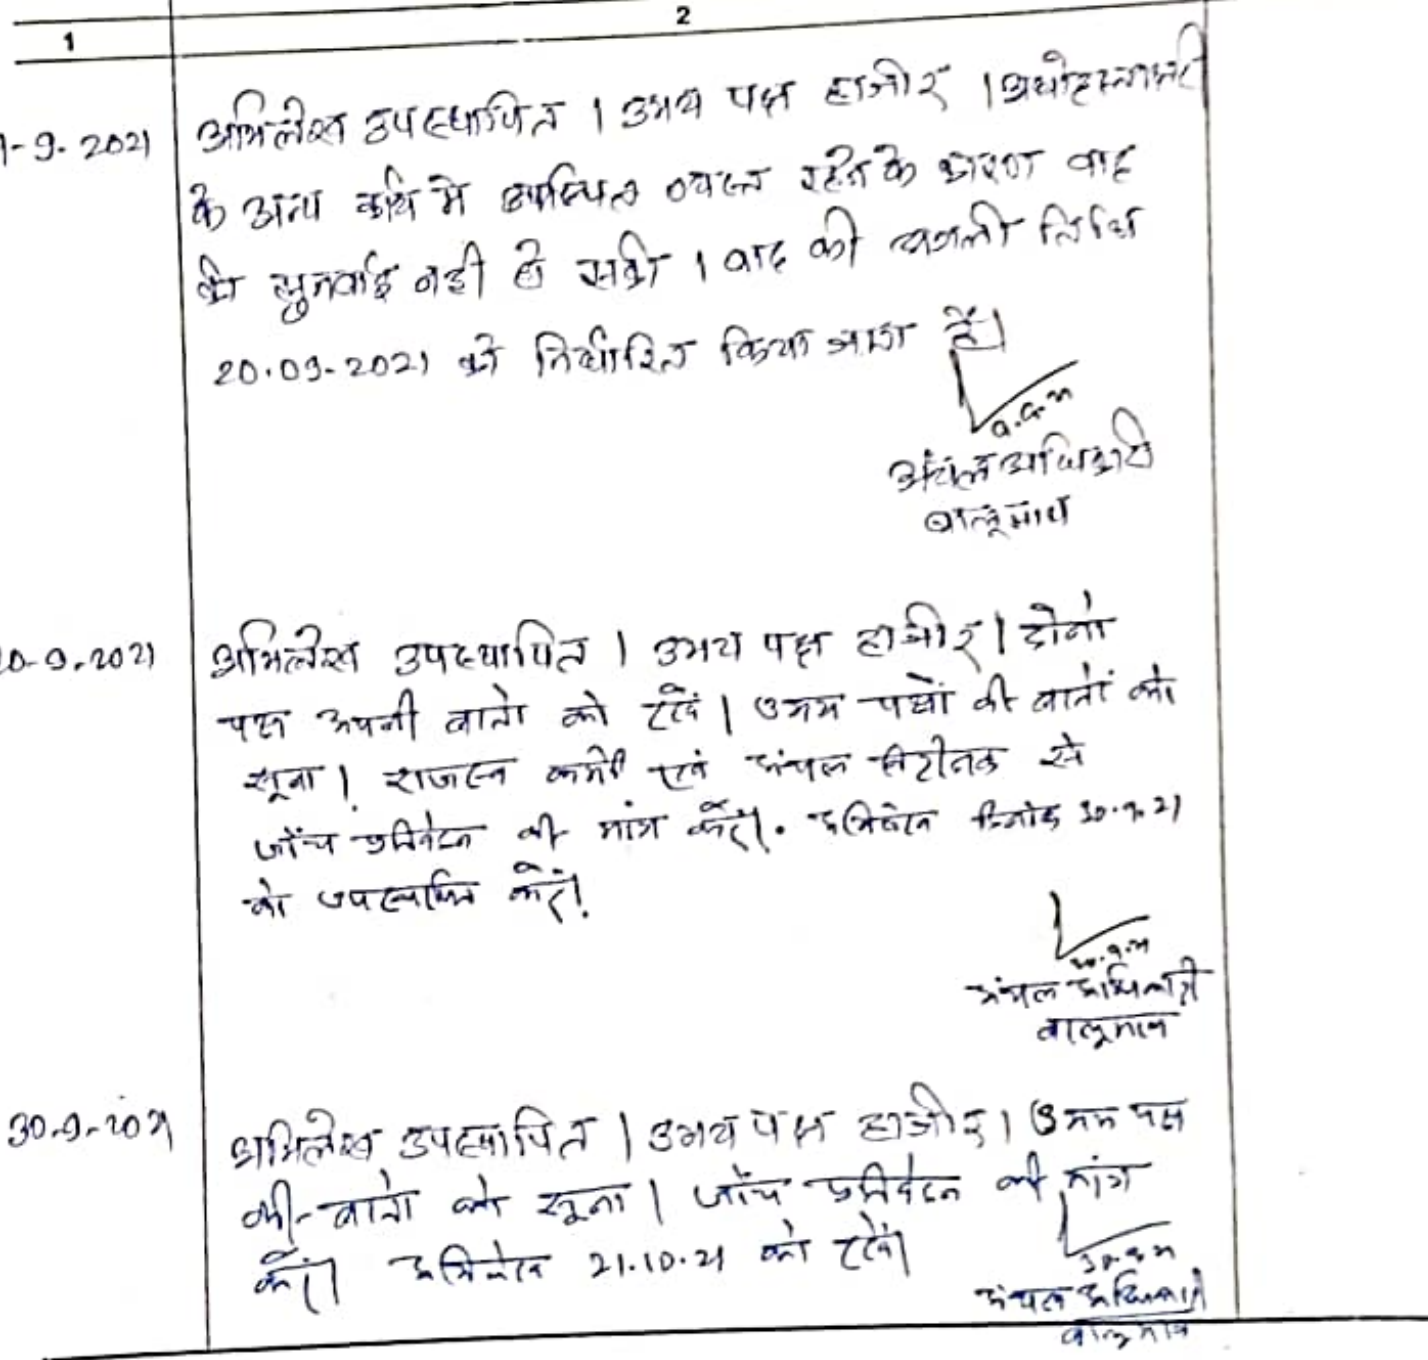 1
2
1-9-2021
अभिलेख उपस्थापित । उभय पक्ष हाजीर । अधोहस्ताक्षरी
के अन्य कार्य मे व्यस्त रहने के कारण वाद
की सुनवाई नही हो सकी । वाद की अगली तिथि
20.09-2021 को निर्धारित किया जाता है।
अंचल अधिकारी
बालूमाथ
20-9-2021
अभिलेख उपस्थापित । उभय पक्ष हाजीर । दोनो
पक्ष अपनी बातो को रखें । उभय पक्षों की बातों को
सूना । राजस्व कर्मी एवं अंचल निरीक्षक से
जाँच प्रतिवेदन की मांग करें। अभिलेख दिनांक 30.9.21
को उपस्थापित करें।
अंचल अधिकारी
बालूमाथ
30-9-2021
अभिलेख उपस्थापित । उभय पक्ष हाजीर । उभय पक्ष
की बातो को सूना । जाँच प्रतिवेदन की मांग
करें। अभिलेख 21.10.21 को रखें।
30.9.21
अंचल अधिकारी
बालूमाथ